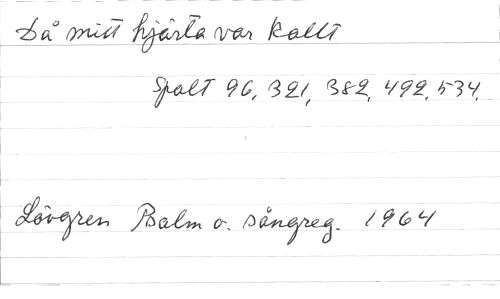 Då mitt hjärta var kallt
Spalt 96, 321, 382, 492, 534.
Lövgren Psalm o. sångreg. 1964